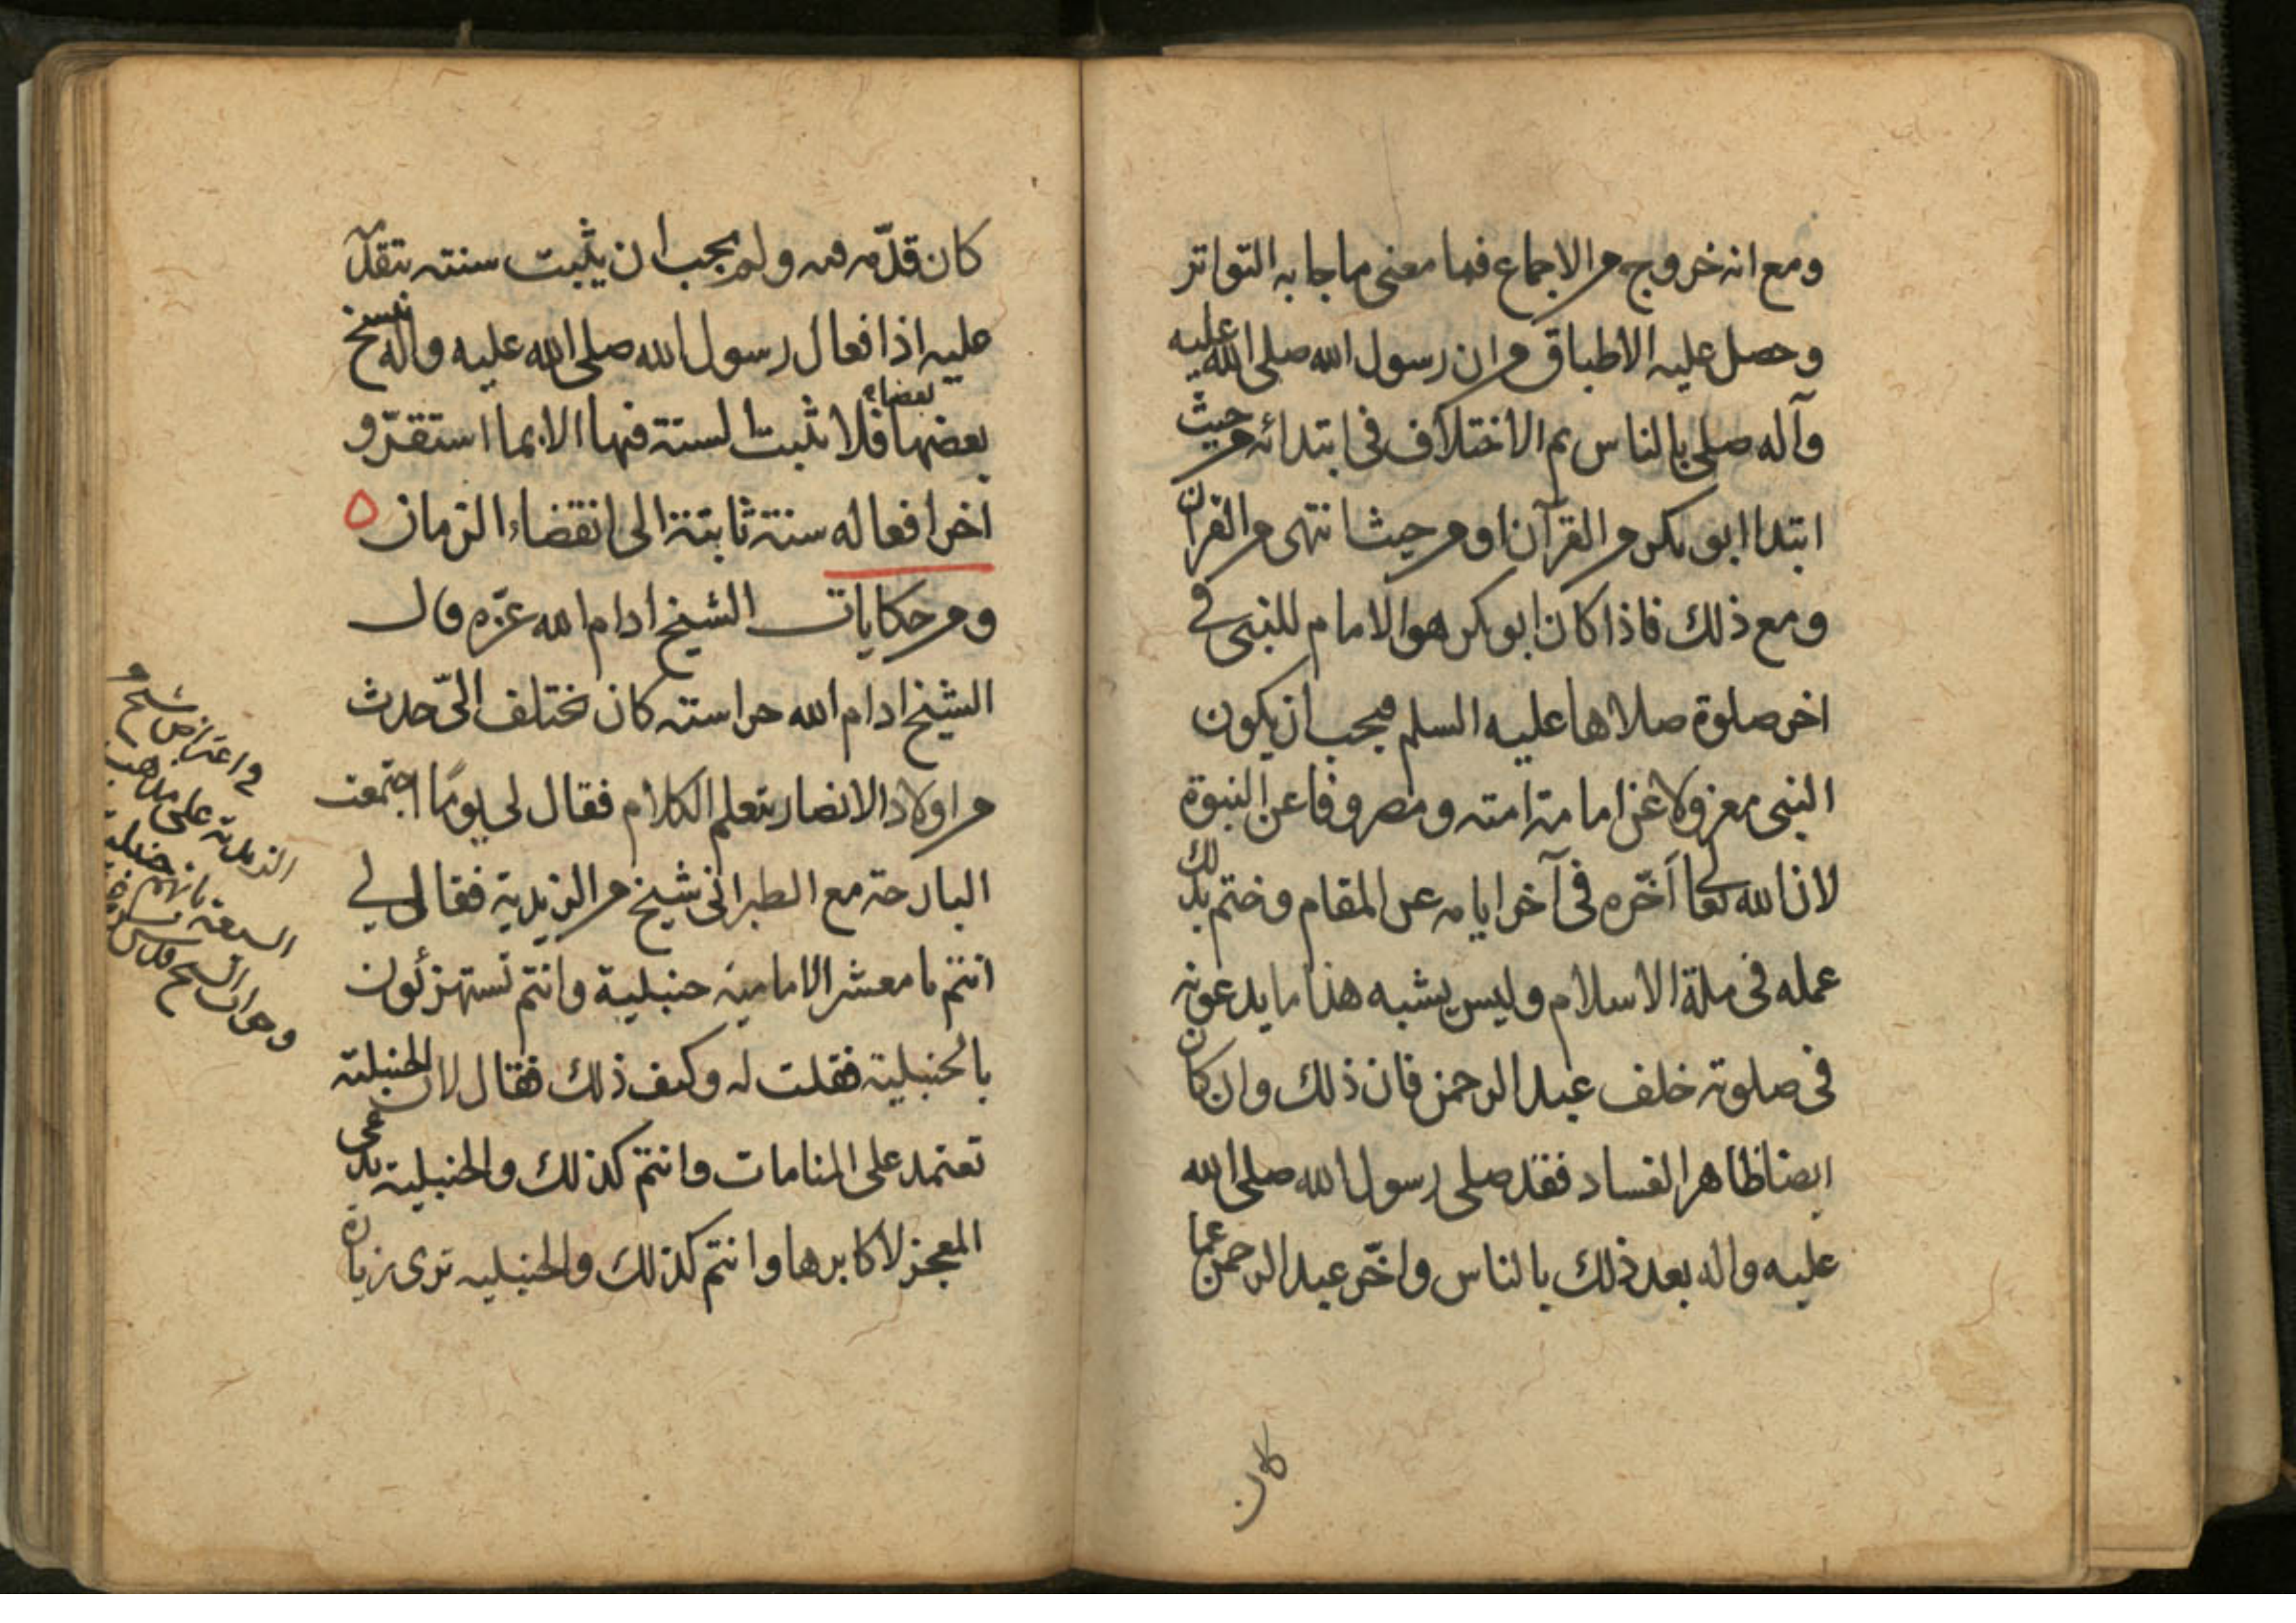 ومع انه خروج من الاجماع فما معنى ما جا به التواتر
وحصل عليه الاطباق من ان رسول الله صلى الله عليه
وآله صلى بالناس ثم الاختلاف فى ابتدائه من حيث
ابتدا ابو بكر من القرآن او من حيث انتهى من القرآن
ومع ذلك فاذا كان ابو بكر هو الامام للنبى فى
اخر صلوة صلاها عليه السلم فيجب ان يكون
النبى معزولا عن امامة امته ومصروفا عن النبوة
لان الله تعا اخّره فى آخر ايامه عن المقام وختم بذلك
عمله فى ملة الاسلام وليس يشبه هذا ما يدعونه
فى صلوته خلف عبد الرحمن فان ذلك وان كان
ايضا ظاهر الفساد فقد صلى رسول الله صلى الله
عليه واله بعد ذلك بالناس واخّر عبد الرحمن عما
كان
كان قدّمه فيه ولم يجب ان يثبت سنته بتقدّمه
عليه اذا فعال رسول الله صلى الله عليه واله ينسخ
بعضها بعضا فلا تثبت السنة فيها الا بما استقرّ و
اخر افعاله سنة ثابتة الى انقضاء الزمان
ومن حكايات الشيخ ادام الله عزّه قال
الشيخ ادام الله حراسته كان يختلف الىّ حدث
من اولاد الانصار يتعلم الكلام فقال لى يومًا اجتمعت
البارحة مع الطبرانى شيخ من الزيدية فقال لى
انتم يا معشر الامامية حنبلية وانتم تستهزئون
بالحنبلية فقلت له وكيف ذلك فقال لان الحنبلية
تعتمد على المنامات وانتم كذلك والحنبلية تدعى
المعجز لاكابرها وانتم كذلك والحنبليه ترى زيارة
فى اعتراض شيخ من
الزيدية على مذهب
الشيعة بانهم حنبلية
وجواب الشيخ قدس سره